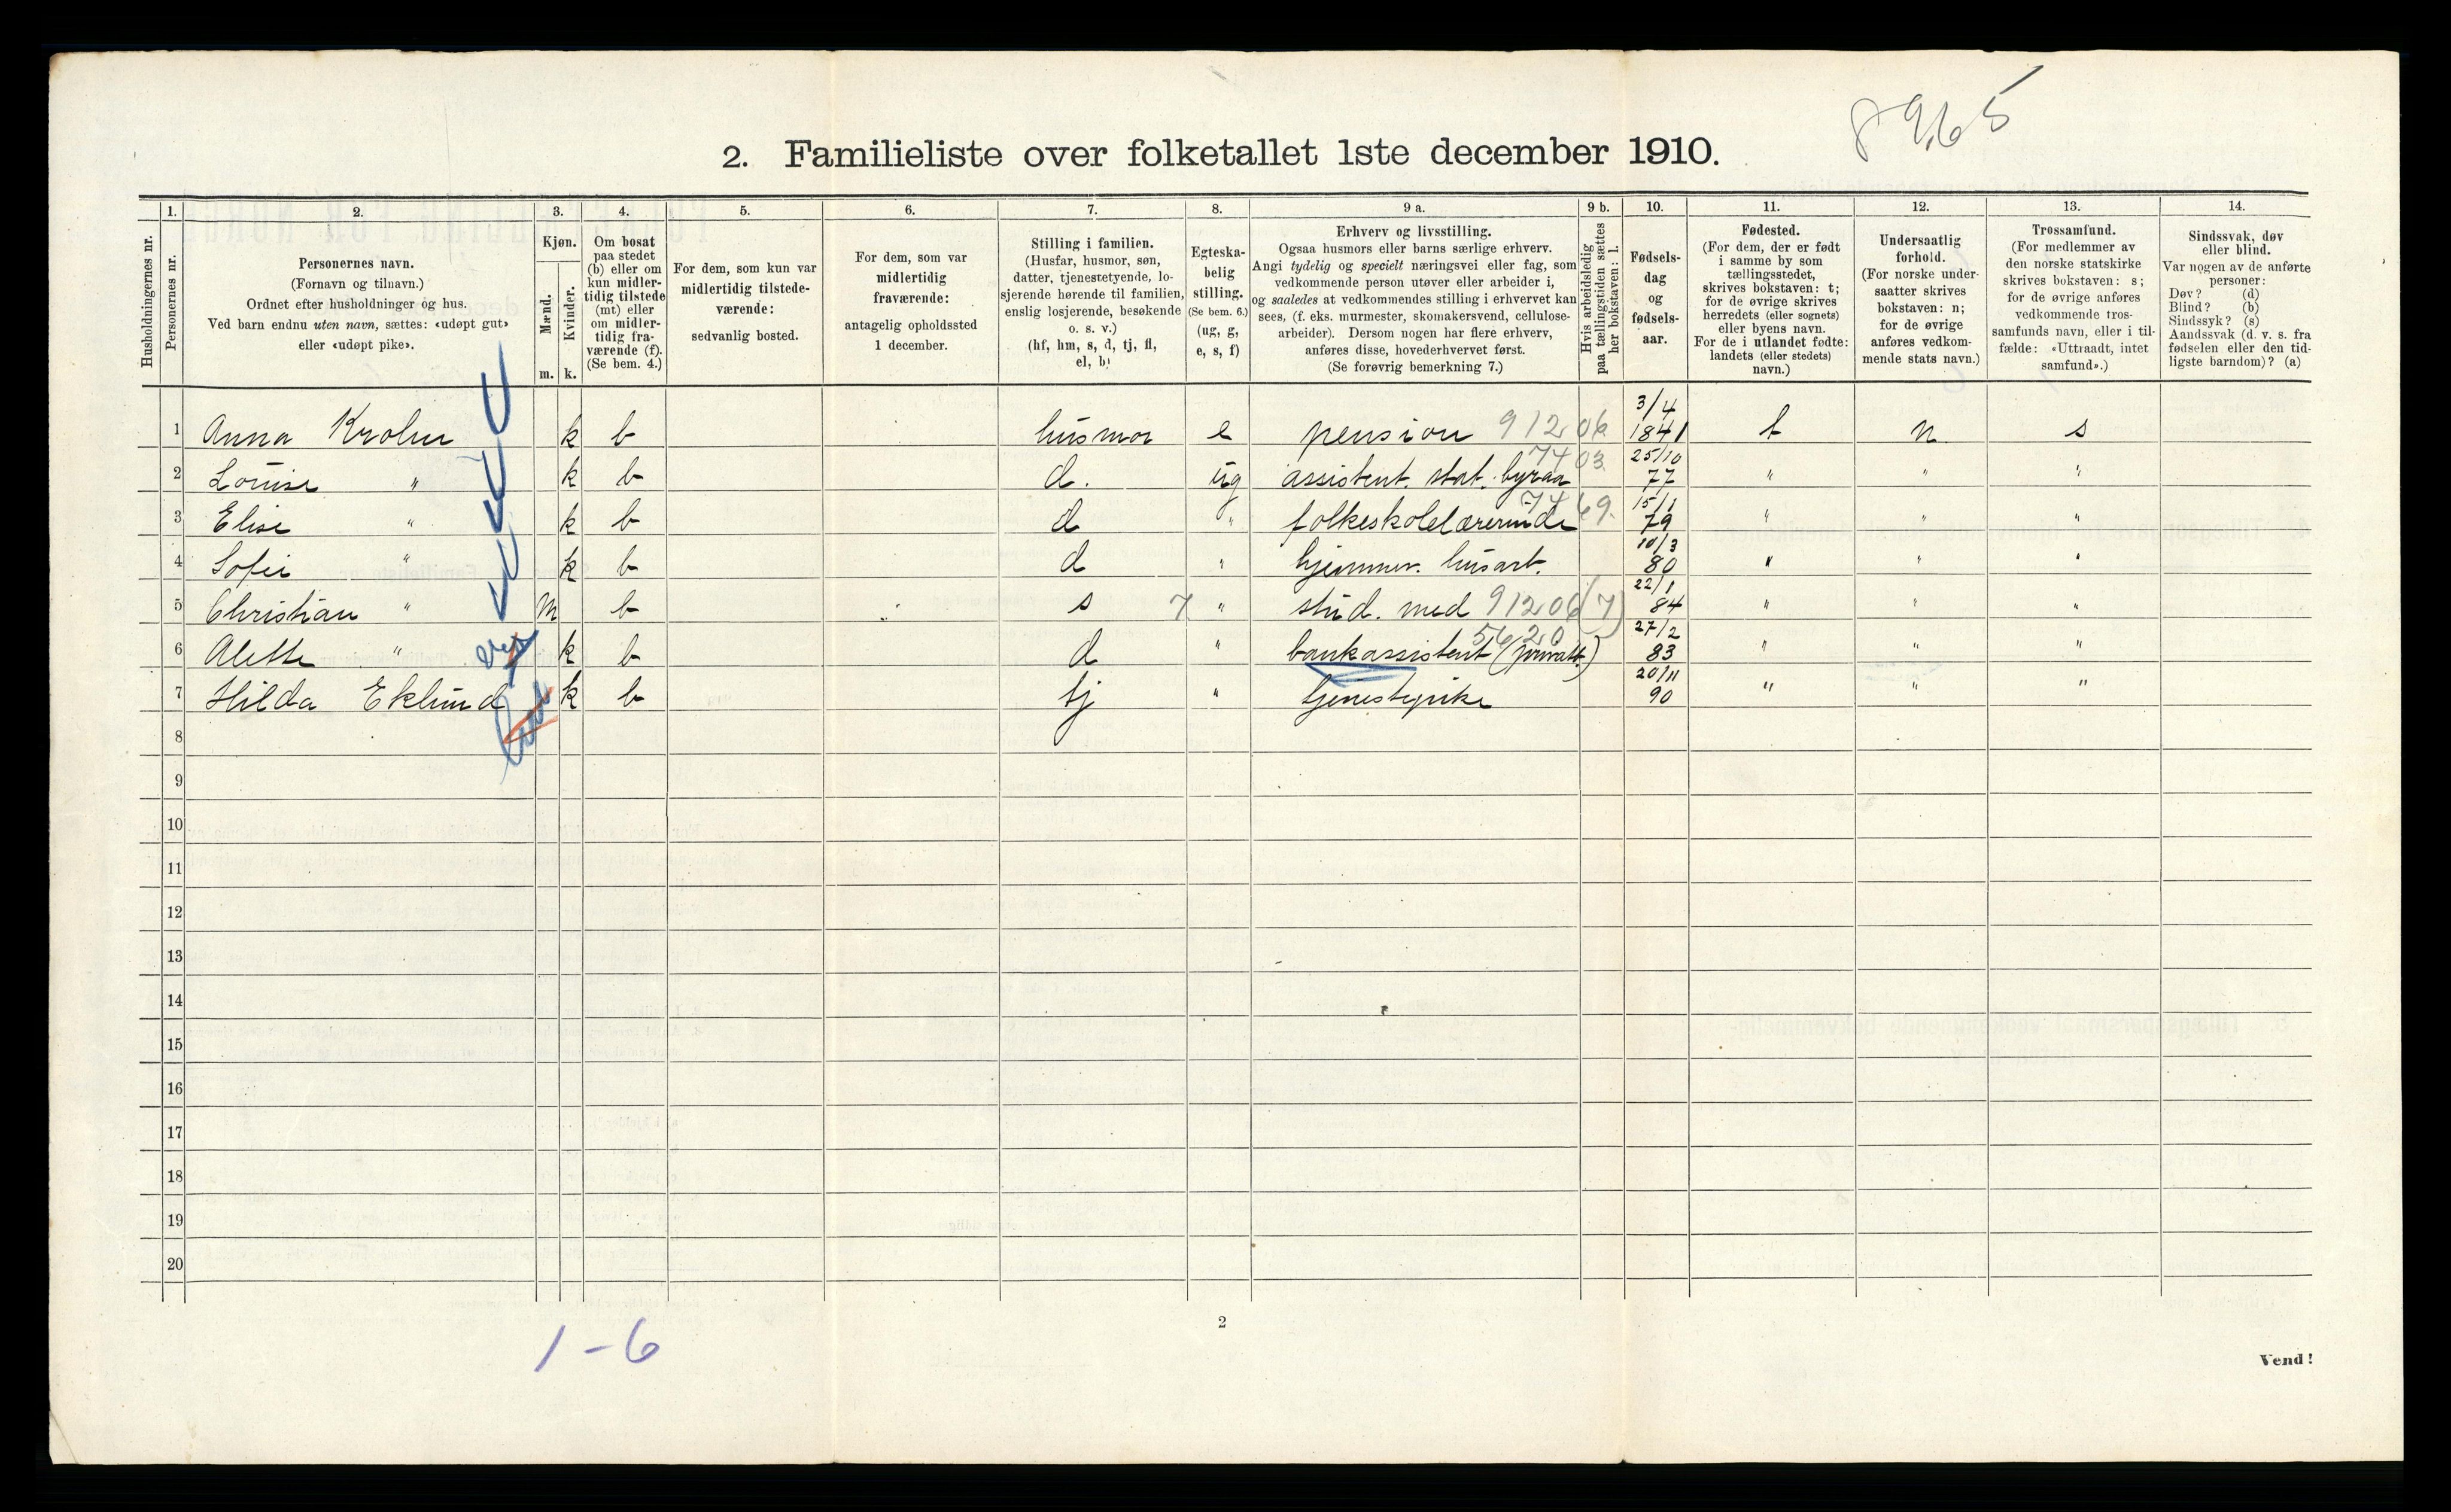 8965
2. Familieliste over folketallet 1ste december 1910.
Husholdningernes nr.
1.
Personernes nr.
2.
Personernes navn.
(Fornavn og tilnavn.)
Ordnet efter husholdninger og hus.
Ved barn endnu uten navn, sættes: «udøpt gut»
eller «udøpt pike».
3.
Kjøn.
Mænd.
Kvinder.
m. k.
4.
Om bosat
paa stedet
(b) eller om
kun midler-
tidig tilstede
(mt) eller
om midler-
tidig fra-
værende (f).
(Se bem. 4.)
5.
For dem, som kun var
midlertidig tilstede-
værende:
sedvanlig bosted.
6.
For dem, som var
midlertidig
fraværende:
antagelig opholdssted
1 december.
7.
Stilling i familien.
(Husfar, husmor, søn,
datter, tjenestetyende, lo-
sjerende hørende til familien,
enslig losjerende, besøkende
o. s. v.)
(hf, hm, s, d, tj, fl,
el, b)
8.
Egteska-
belig
stilling.
(Se bem. 6.)
(ug, g,
e, s, f)
9 a.
Erhverv og livsstilling.
Ogsaa husmors eller barns særlige erhverv.
Angi tydelig og specielt næringsvei eller fag, som
vedkommende person utøver eller arbeider i,
og saaledes at vedkommendes stilling i erhvervet kan
sees, (f. eks. murmester, skomakersvend, cellulose-
arbeider). Dersom nogen har flere erhverv,
anføres disse, hovederhvervet først.
(Se forøvrig bemerkning 7.)
9 b.
Hvis arbeidsledig
paa tællingstiden sættes
her bokstaven: l.
10.
Fødsels-
dag
og
fødsels-
aar.
11.
Fødested.
(For dem, der er født
i samme by som
tællingsstedet,
skrives bokstaven: t;
for de øvrige skrives
herredets (eller sognets)
eller byens navn.
For de i utlandet fødte:
landets (eller stedets)
navn.)
12.
Undersaatlig
forhold.
(For norske under-
saatter skrives
bokstaven: n;
for de øvrige
anføres vedkom-
mende stats navn.)
13.
Trossamfund.
(For medlemmer av
den norske statskirke
skrives bokstaven: s;
for de øvrige anføres
vedkommende tros-
samfunds navn, eller i til-
fælde: «Uttraadt, intet
samfund».)
14.
Sindssvak, døv
eller blind.
Var nogen av de anførte
personer:
Døv? (d)
Blind? (b)
Sindssyk? (s)
Aandssvak (d. v. s. fra
fødselen eller den tid-
ligste barndom)? (a)
1 Anna Krohn k b husmor e pension 91206 3/4 1841 t n s
2 Louise " k b d. ug assistent. stat. byraa 7403 25/10 77 " " "
3 Elise " k b d " folkeskolelærerinde 7469. 15/1 79 " " "
4 Sofie " k b d " hjemmev. husarb. 10/3 80 " " "
5 Christian " m b s 7 " stud. med 91206 (7) 22/1 84 " " "
6 Alette " k b d " bankassistent (privatb.) 5620 27/2 83 " " "
7 Hilda Eklund k b tj " tjenestepike 20/11 90 " " "
8
9
10
11
12
13
14
15
16
17
18
19
20
1-6
2
Vend!